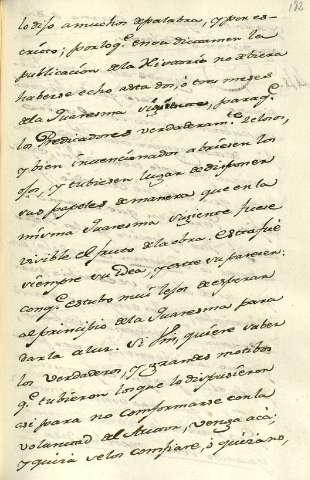 182
lo dijo a muchos de palabra, y por es-
crito; por lo q.e en su dictamen la
publicacion de la Historia no debiera
haberse echo asta dos, ò tres meses
de la Quaresma siguiente, para q.e
los Predicadores verdaderam.te zelosos,
y bien intencionados abriesen los
ojos, y tubiesen lugar de disponer
sus papeles de manera que en la
misma Quaresma siguiente fuese
visible el fruto de la obra. Esta fuè
siempre su idea, y este su parecer:
con q.e estubo mui lejos de esperar
al principio de la Quaresma para
darla a luz. Si Vm. quiere saber
los verdaderos, y grandes motibos
q.e tubieron los que lo dispusieron
asi para no conformarse con la
voluntad del Autor, venga acà;
y quizà se los confiarè, ò quizà no,